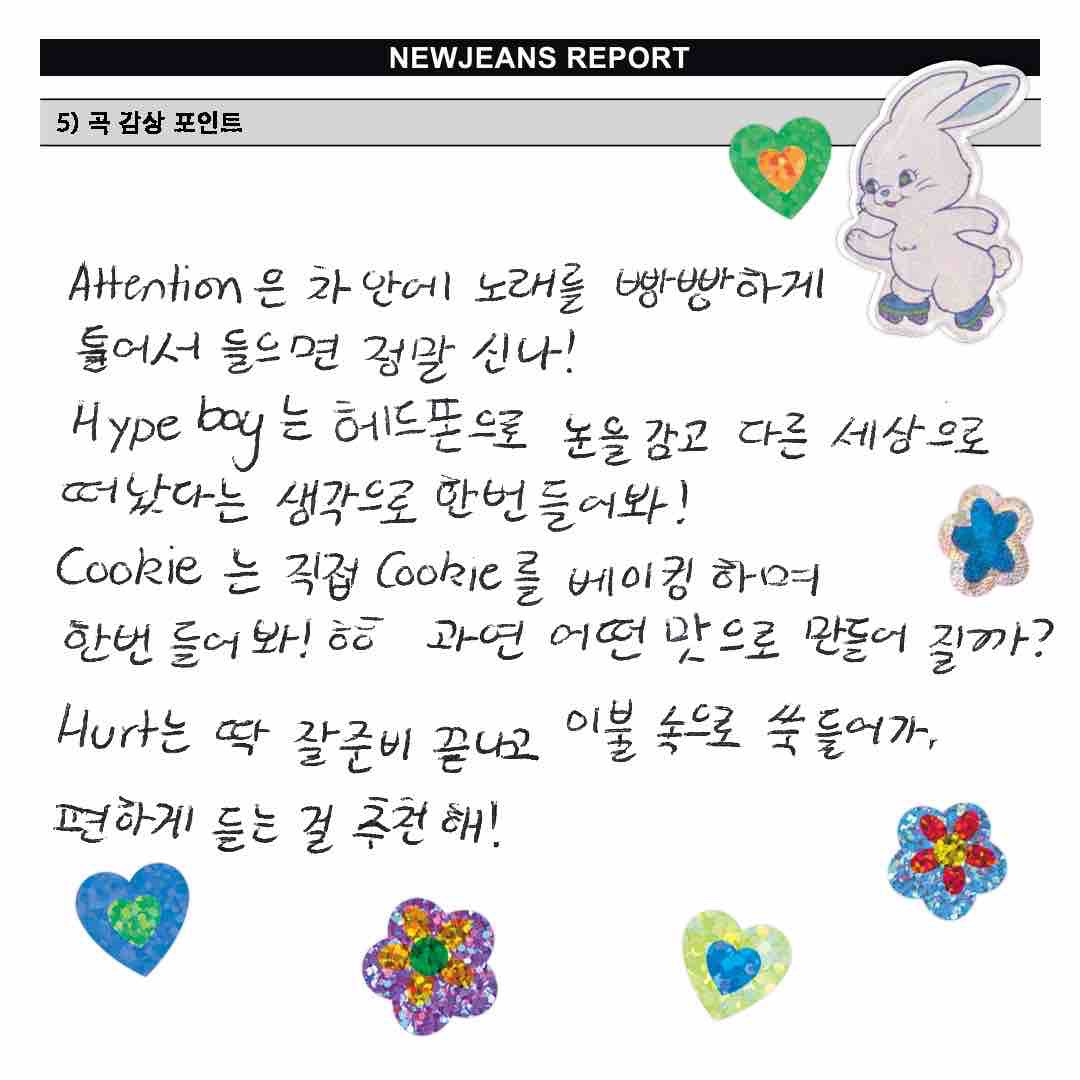 NEWJEANS REPORT
5) 곡 감상 포인트
Attention은 차 안에 노래를 빵빵하게
틀어서 들으면 정말 신나!
Hype boy는 헤드폰으로 눈을 감고 다른 세상으로
떠났다는 생각으로 한번 들어봐!
Cookie 는 직접 Cookie를 베이킹 하며
한번 들어봐! ㅎㅎ 과연 어떤 맛으로 만들어 질까?
Hurt는 딱 잘준비 끝나고 이불 속으로 쏙 들어가,
편하게 듣는 걸 추천해!